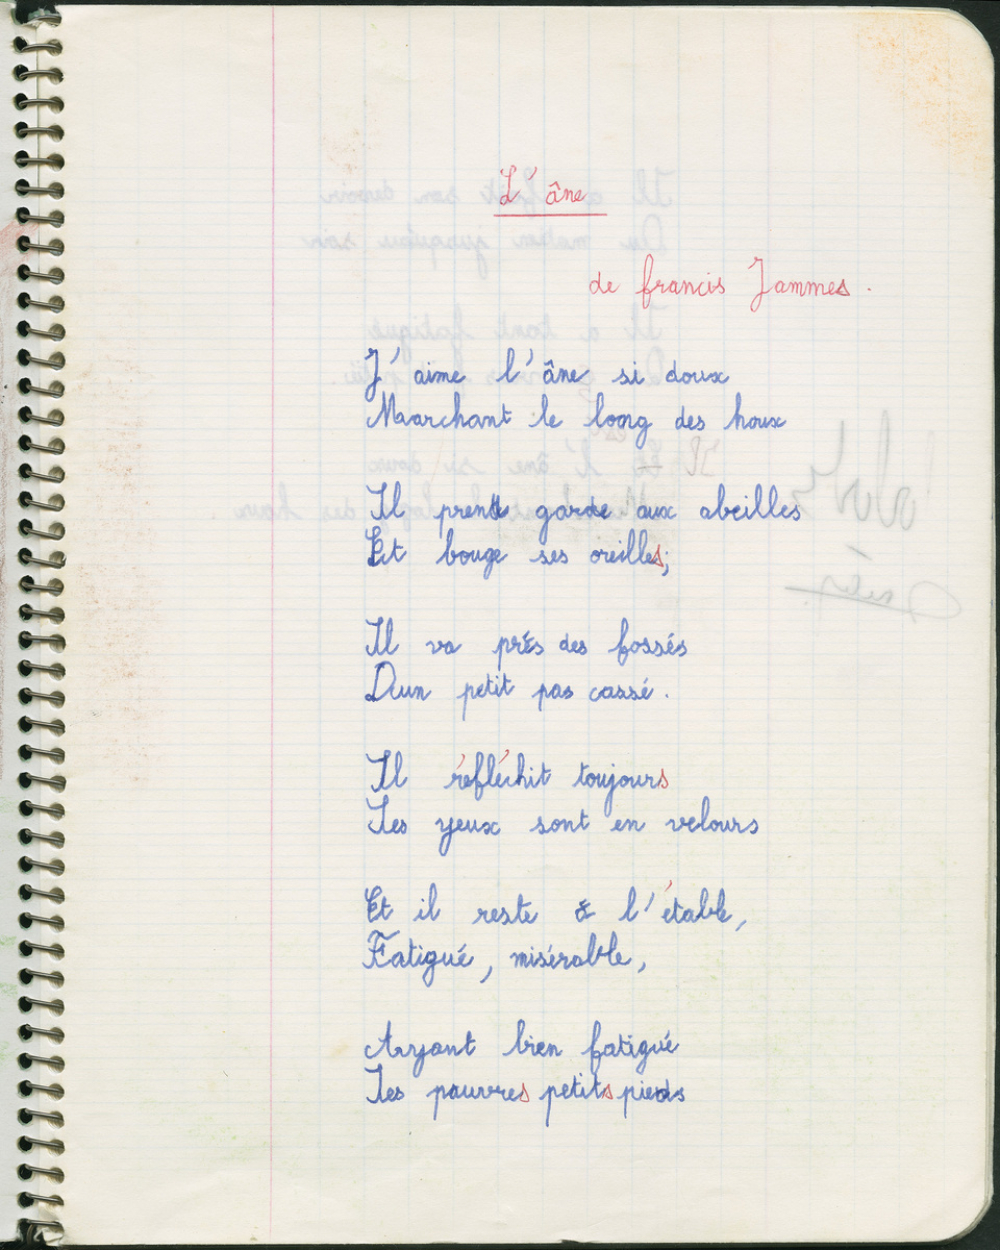 L'âne
de francis Jammes.
J'aime l'âne si doux
Marchant le long des houx
Il prend garde aux abeilles
Et bouge ses oreilles;
Il va près des fossés
D'un petit pas cassé.
Il réfléchit toujours
Ses yeux sont en velours
Et il reste à l'étable,
Fatigué, misérable,
Ayant bien fatigué
Ses pauvres petits pieds